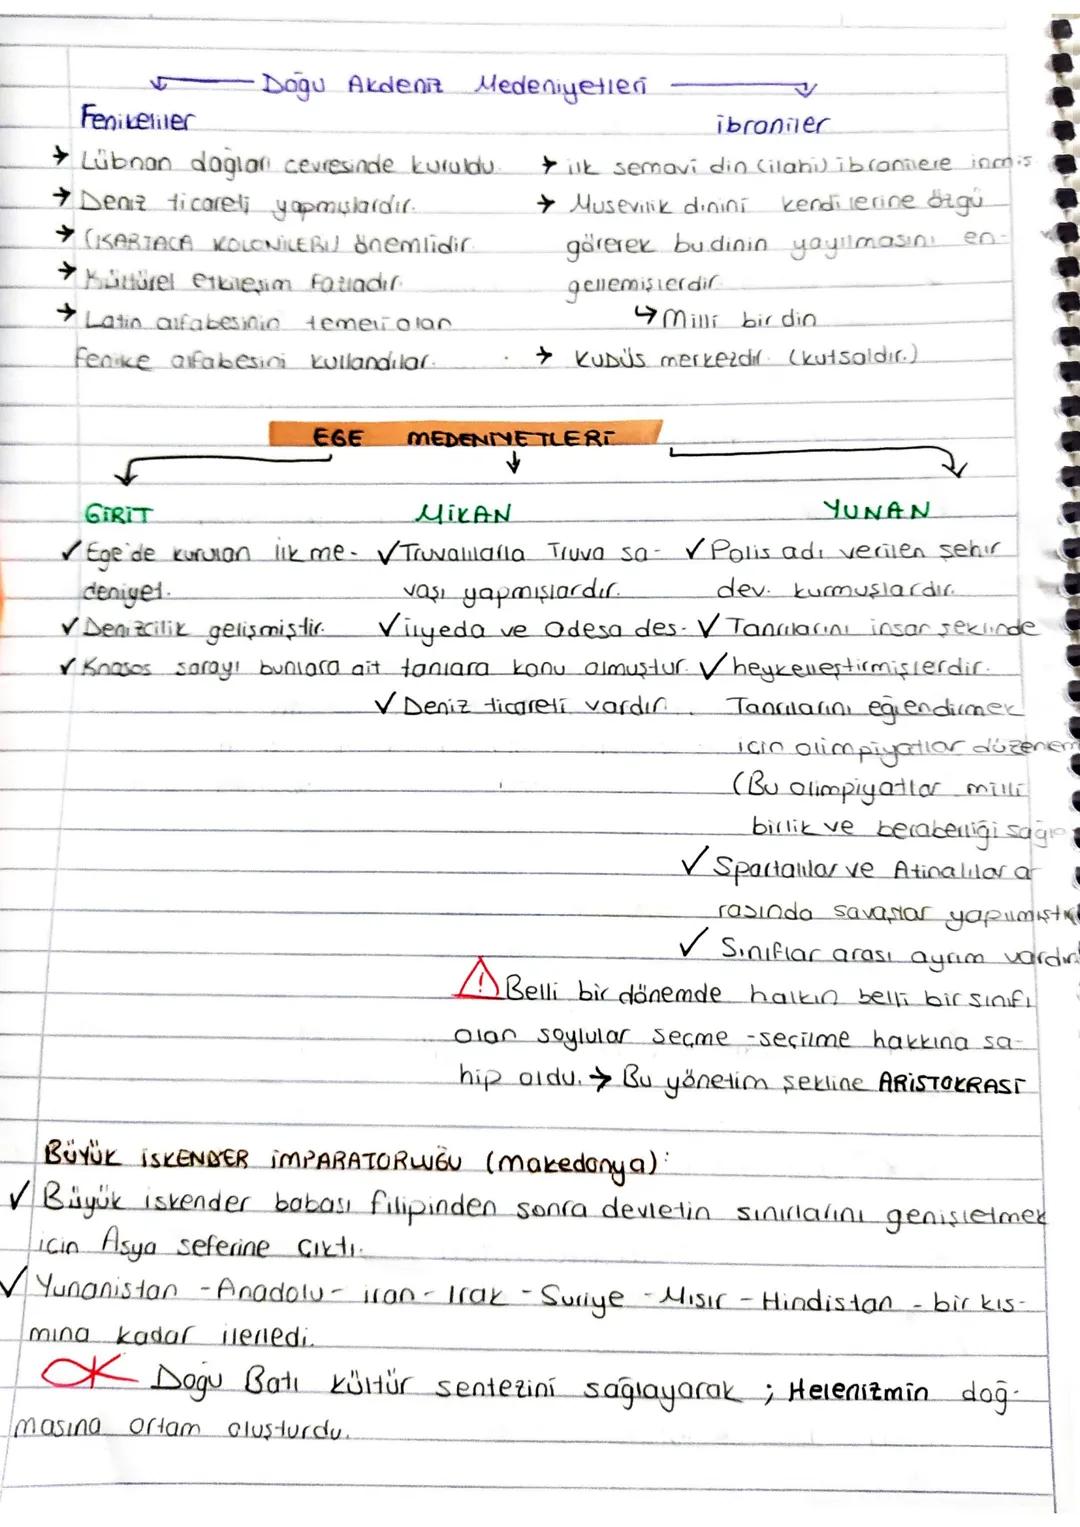 Doğu Akdeniz Medeniyetleri
Fenikeliler
→ Lübnan dağları cevresinde kuruldu.
→ Deniz ticareti yapmışlardır.
→ (KARTACA KOLONİLERİ) önemlidir.
→ Kültürel etkileşim fazladır.
→ Latin alfabesinin temeli olan
fenike alfabesini kullandılar.
ibraniler
→ ilk semavi din (ilahi) ibranilere inmiş
→ Musevilik dinini kendilerine özgü
görerek bu dinin yayılmasını en-
gellemişlerdir.
↳ Milli bir din
→ KUDÜS merkezdir. (kutsaldır.)
EGE MEDENİYETLERİ
GİRİT
✓ Ege'de kurulan ilk me-
deniyet.
✓ Denizcilik gelişmiştir.
✓ Knosos sarayı bunlara ait
MİKAN
✓ Truvalılarla Truva sa-
vaşı yapmışlardır.
✓ ilyeda ve Odesa des-
tanlara konu olmuştur.
✓ Deniz ticareti vardır.
YUNAN
✓ Polis adı verilen şehir
dev. kurmuşlardır.
✓ Tanrılarını insan şeklinde
✓ heykelleştirmişlerdir.
Tanrılarını eğlendirmek
için olimpiyatlar düzenlem
(Bu olimpiyatlar milli
birlik ve beraberliği sağla
✓ Spartalılar ve Atinalılar a
rasında savaşlar yapılmıştır
✓ Sınıflar arası ayrım vardır
⚠ Belli bir dönemde halkın belli bir sınıfı
olan soylular seçme -seçilme hakkına sa-
hip oldu. → Bu yönetim şekline ARİSTOKRASİ
BÜYÜK İSKENDER İMPARATORLUĞU (Makedonya):
✓ Büyük iskender babası filipinden sonra devletin sınırlarını genişletmek
için Asya seferine çıktı.
✓ Yunanistan -Anadolu- iran - Irak - Suriye - Mısır - Hindistan - bir kıs-
mına kadar ilerledi.
Doğu Batı kültür sentezini sağlayarak ; Helenizmin doğ-
masına ortam oluşturdu.